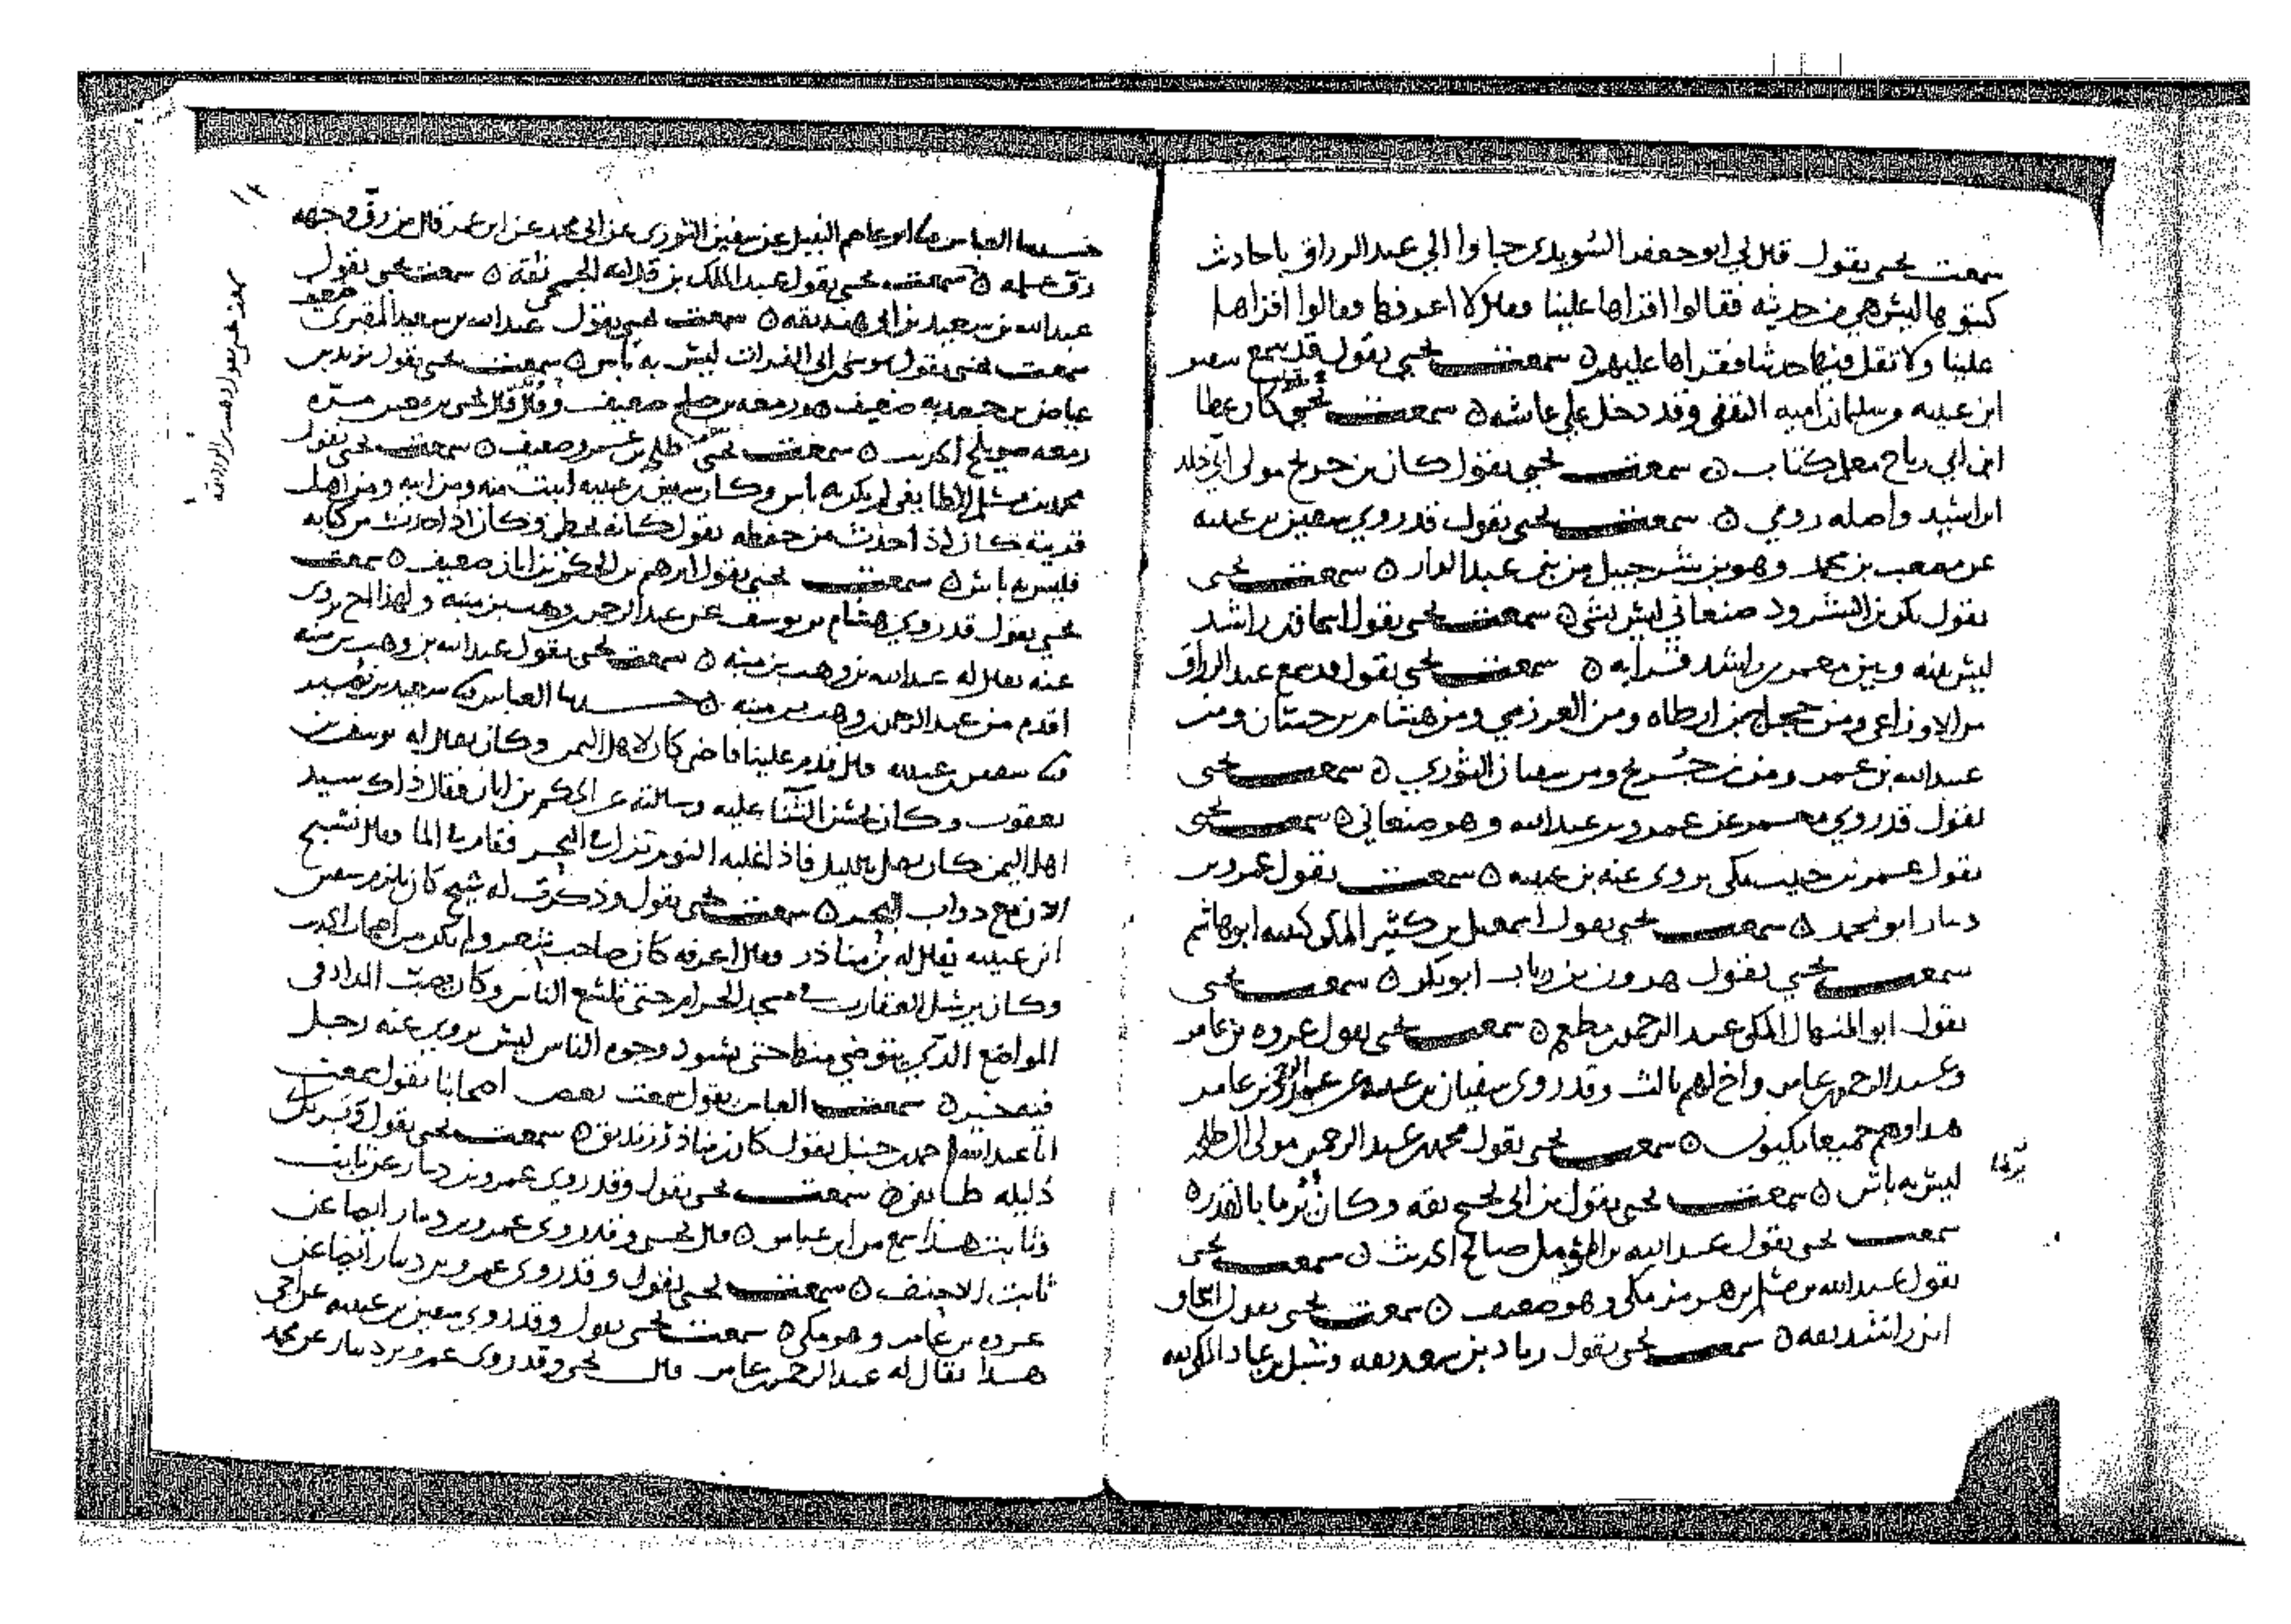 سمعت يحيى يقول قال لي ابو جعفر السويدي جاوا الى عبد الرزاق باحاديث
كتبوها ليس هي من حديثه فقالوا اقراها علينا فقال لا اعرفها فقالوا اقراها
علينا ولا تقل فيها حدثنا فقراها عليهم ۝ سمعت يحيى يقول قد سمع سفين
ابن عيينه وسليمان اميه الثقفي وقد دخل على عائشه ۝ سمعت يحيى يقول كان عطا
ابن ابي رباح معلم كتاب ۝ سمعت يحيى يقول كان بن جريج مولى ال خلد
ابن اسيد واصله رومي ۝ سمعت يحيى يقول قد روى سفين بن عيينه
عن مصعب بن محمد وهو بن شرحبيل من بني عبد الدار ۝ سمعت يحيى
يقول بكر بن الشرود صنعاني ليس بشي ۝ سمعت يحيى يقول اسما بن راشد
ليس بينه وبين معمر بن راشد قرابه ۝ سمعت يحيى يقول قد سمع عبد الرزاق
من الاوزاعي ومن حجاج بن ارطاه ومن العرزمي ومن هشام بن حسان ومن
عبد الله بن عمر ومن بن جريج ومن سفيان الثوري ۝ سمعت يحيى
يقول قد روى معمر عن عمرو بن عبد الله وهو صنعاني ۝ سمعت يحيى
يقول عمر بن حبيب مكي يروى عنه بن عيينه ۝ سمعت يقول عمرو بن
دينار ابو محمد ۝ سمعت يحيى يقول اسمعيل بن كثير المكي كنيته ابو هاشم
سمعت يحيى يقول هرون بن رياب ابو بكر ۝ سمعت يحيى
يقول ابو المنهال المكي عبد الرحمن بن مطعم ۝ سمعت يحيى يقول عروه بن عامر
وعبد الرحمن بن عامر واخ لهم ثالث وقد روى سفيان بن عيينه عن عبد الرحمن بن عامر
هذا وهم جميعا مكيون ۝ سمعت يحيى يقول محمد بن عبد الرحمن مولى ال طلحه
ليس به باس ۝ سمعت يحيى يقول بن ابي نجيح ثقه وكان يرما بالقدر ۝
سمعت يحيى يقول عبد الله بن المؤمل صالح الحديث ۝ سمعت يحيى
يقول عبد الله بن مسلم بن هرمز مكي وهو ضعيف ۝ سمعت يحيى يقول اسحاق
ابن راشد ثقه ۝ سمعت يحيى يقول زياد بن سعد ثقه وشبل بن عباد المكي ثقه
حدثنا العباس نا ابو عاصم النبيل عن سفين الثوري عن ابي محمد عن ابن عمر قال من رق وجهه
رق علمه ۝ سمعت يحيى يقول عبد الملك بن قدامه الجمحي ثقه ۝ سمعت يحيى يقول
عبد الله بن سعيد بن ابي هند ثقه ۝ سمعت يحيى يقول عبد الله بن سعيد المقبري ضعيف
سمعت يحيى يقول موسى بن ابي الفرات ليس به باس ۝ سمعت يحيى يقول يزيد بن
عياض بن جعدبه ضعيف وزمعه بن صالح ضعيف وقال قال يحيى بن معين مره
زمعه صويلح الحديث ۝ سمعت يحيى يقول طلحه بن عمرو ضعيف ۝ سمعت يحيى يقول
محمد بن مسلم الطايفي لم يكن به باس وكان سفين بن عيينه اثبت منه ومن ابيه ومن اهل
قريته كان اذا حدث من حفظه يقول كانه يخطي وكان اذا حدث من كتابه
فليس به باس ۝ سمعت يحيى يقول ابرهيم بن الحكم بن ابان ضعيف ۝ سمعت
يحيى يقول قد روى هشام بن يوسف عن عبد الرحمن بن وهب بن منبه ولهذا اخ يروى
عنه يقال له عبد الله بن وهب بن منبه ۝ سمعت يحيى يقول عبد الله بن وهب بن منبه
اقدم من عبد الرحمن بن وهب بن منبه ۝ حدثنا العباس نا سعيد بن نصير
نا سفين بن عيينه قال قدم علينا قاض كان لاهل اليمن وكان يقال له يوسف بن
يعقوب وكان يحسن الثنا عليه وسالته عن الحكم بن ابان فقال ذاك سيد
اهل اليمن كان يصلي بالليل فاذا غلبه النوم نزل الى البحر فقام في الما وقال نسبح
الان مع دواب البحر ۝ سمعت يحيى يقول وذكرت له شيخ كان يلزم سفين
ابن عيينه يقال له بن مناذر فقال اعرفه كان صاحب شعر ولم يكن من اصحاب الحديث
وكان يرسل العقارب في مسجد الحرام حتى تلسع الناس وكان يصب المداد في
المواضع الذي يتوضي منها حتى يسود وجوه الناس ليس يروي عنه رجل
فيه خير ۝ سمعت العباس يقول سمعت بعض اصحابنا يقول سمعت
ابا عبد الله احمد بن حنبل يقول كان بن مناذر زنديق ۝ سمعت يحيى يقول وبر بن
ابي دليله طايفي ۝ سمعت يحيى يقول وقد روى عمرو بن دينار عن ثابت
وثابت هذا سمع من ابن عباس ۝ قال يحيى وقد روى عمرو بن دينار ايضا عن
ثابت الاحنف ۝ سمعت يحيى يقول وقد روى عمرو بن دينار ايضا عن
عروه بن عامر وهو مكي ۝ سمعت يحيى يقول وقد روى سفين بن عيينه عن اخي
هذا يقال له عبد الرحمن بن عامر قال يحيى وقد روى عمرو بن دينار عن محمد